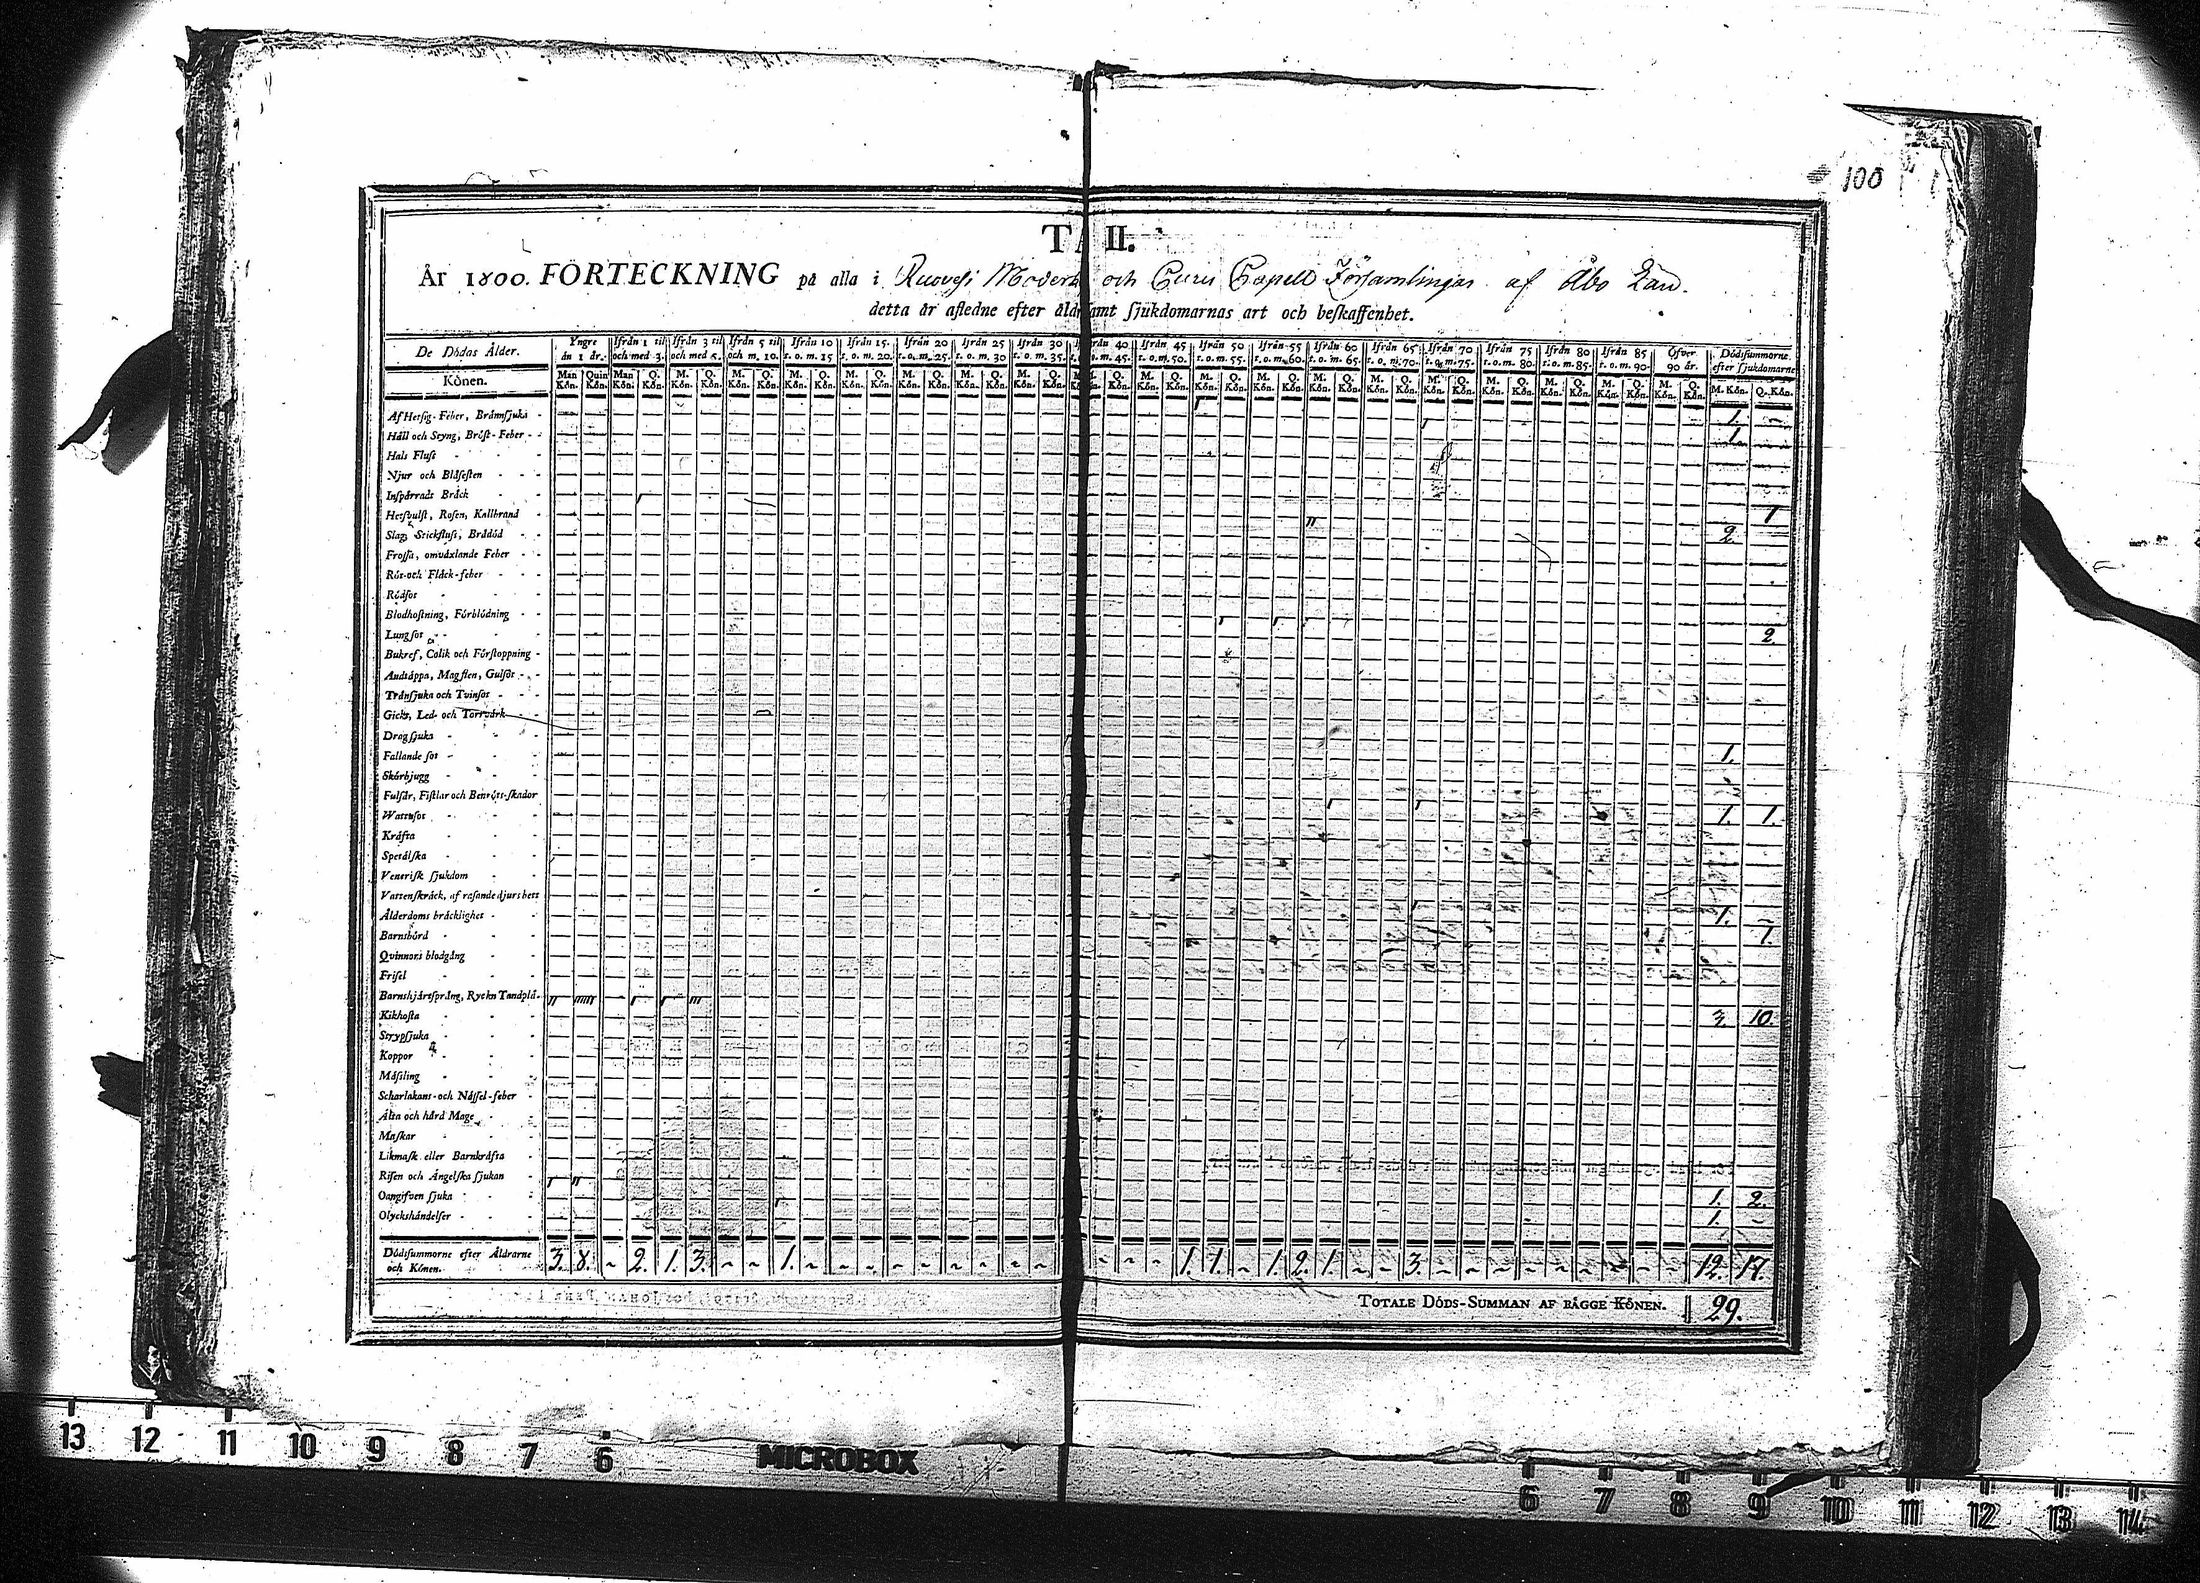 100
TA II.
År 1800. FÖRTECKNING på alla i Ruovesi Moder och Curu Capell Församlingar af Åbo Län.
detta år aflednе efter åldr samt sjukdomarnas art och beskaffenhet.
De Dödas Ålder. Yngre än 1 år. Ifrån 1 til och med 3. Ifrån 3 til och med 5. Ifrån 5 til och m. 10. Ifrån 10 t. o. m. 15 Ifrån 15. t. o. m. 20. Ifrån 20 t. o. m. 25. Ifrån 25 t. o. m. 30 Ifrån 30 t. o. m. 35. rån 40 o. m. 45. Ifrån 45 t. o. m. 50. Ifrån 50 t. o. m. 55. Ifrån 55 t. o. m. 60. Ifrån 60 t. o. m. 65. Ifrån 65 t. o. m. 70. Ifrån 70 t. o. m. 75. Ifrån 75 t. o. m. 80. Ifrån 80 t. o. m. 85. Ifrån 85 t. o. m. 90 Öfver 90 år. Dödssummorne efter sjukdomarne
Könen. Man Kön. Quin Kön. Man Kön. Q. Kön. M. Kön. Q. Kön. M. Kön. Q. Kön. M. Kön. Q. Kön.
Af Hetsig-Feber, Brännsjuka 1.
Håll och Styng, Bröst-Feber 1.
Hals Fluss
Njur och Blåsesten
Inspärradt Bråck
Hetsvulst, Rosen, Kallbrand 1
Slag, Stickfluss, Brådöd 2.
Frossa, omväxlande Feber
Röt-och Fläck-feber
Rödsot
Blodhostning, Förblödning
Lungsot 2
Bukref, Colik och Förstoppning
Andtäppa, Magsten, Gulsot
Trånsjuka och Tvinsot
Gickt, Led- och Torrvärk
Dragsjuka
Fallande sot 1.
Skörbjugg
Fulsår, Fistlar och Benröts-skador
Wattusot 1. 1.
Kräfta
Spetälska
Venerisk sjukdom
Vattenskräck, af rasande djurs bett
Ålderdoms bräcklighet 1.
Barnsbörd 1.
Qvinnors blodgång
Frisel
Barnshjärtsprång, Ryck Tandplå
Kikhosta 3. 10.
Strypsjuka
Koppor
Mässling
Scharlakans-och Nässel-feber
Älta och hård Mage
Maskar
Likmask eller Barnkräfta
Risen och Ängelska sjukan
Oangifven sjuka 1. 2.
Olyckshändelser 1.
Dödssummorne efter Åldrarne och Könen. 3. 8. 2. 1. 3. 1. 1. 1. 1. 2. 1. 3. 12. 17.
TOTALE DÖDS-SUMMAN AF BÄGGE KÖNEN. 29.
13 12 11 10 9 8 7 6 MICROBOX 6 7 8 9 10 11 12 13 14